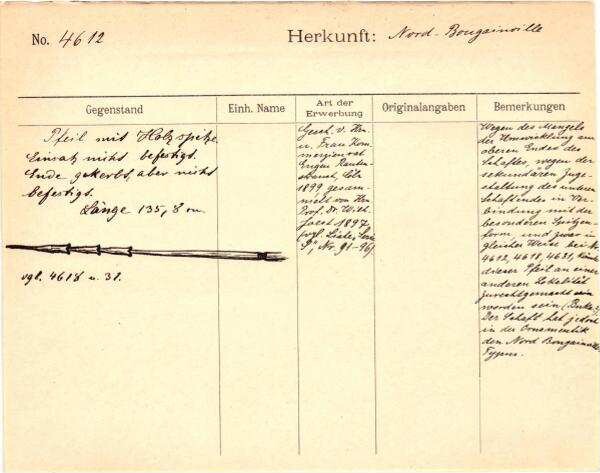 No. 4612
Herkunft: Nord-Bougainville
Gegenstand
Einh. Name
Art der
Erwerbung
Originalangaben
Bemerkungen
Pfeil mit Holzspitze.
Einsatz nicht befestigt.
Ende gekerbt, aber nicht
befestigt.
Länge 135,8 cm.
vgl. 4618 u. 31.
Gesch. v. Hrn.
u. Frau Kom-
merzienrat
Eugen Rauten-
strauch, Cöln
1899 gesam-
melt von Hrn
Prof. Dr. Wilh.
Joest 1897
(vgl. Liste, Serie
Nr. 91-96)
Wegen des Mangels
der Umwicklung am
oberen Endes des
Schaftes, wegen der
sekundären Zuge-
staltung des unteren
Schaftendes in Ver-
bindung mit der
besonderen Spitzen-
form und zwar in
gleicher Weise bei No
4612, 4618, 4631, könnte
dieser Pfeil an einer
anderen Lokalität
zurechtgemacht sein
worden sein (Buka?)
Der Schaft hat jedoch
in der Ornamentik
den Nord Bougainville
Typus.